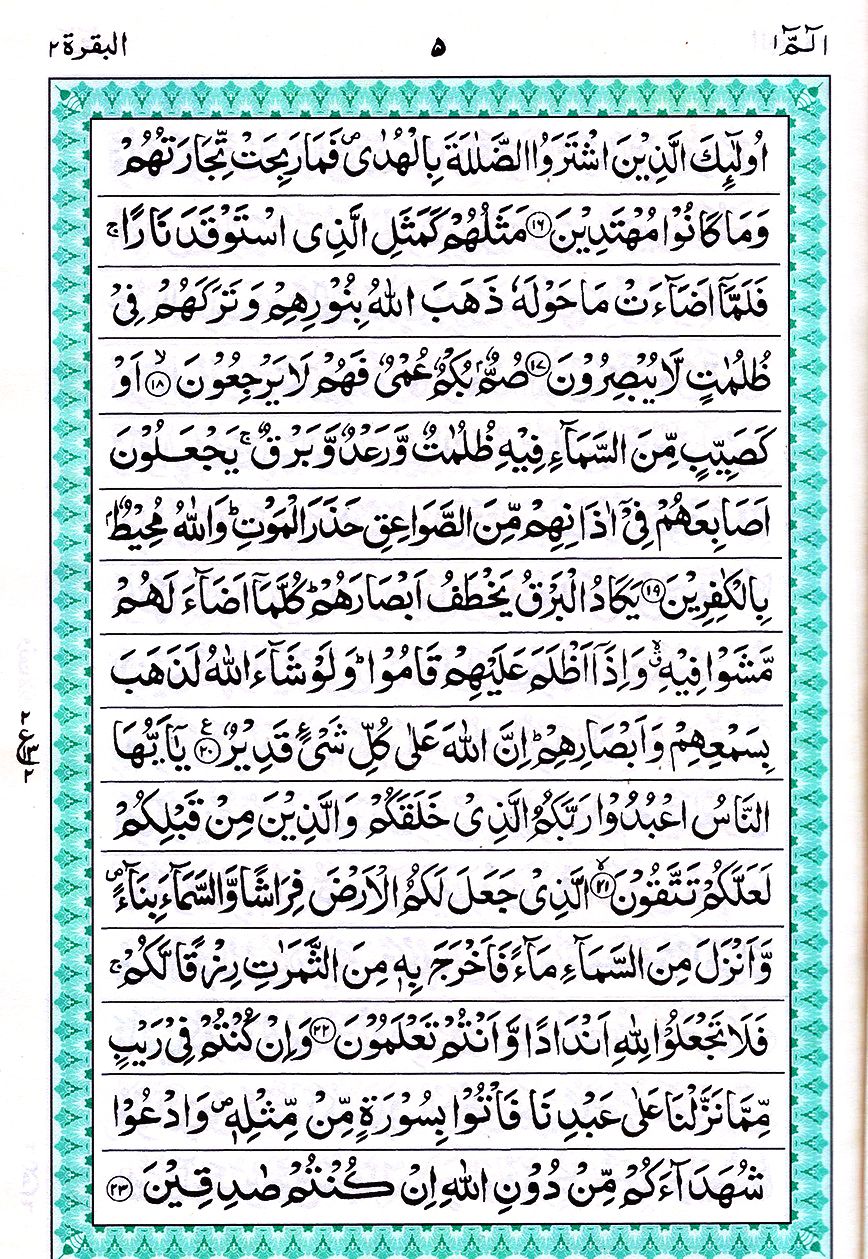 الٓمّٓ ١ ۵ البقرة ٢
اُولٰٓئِكَ الَّذِيْنَ اشْتَرَوُا الضَّلٰلَةَ بِالْهُدٰى ۪ فَمَا رَبِحَتْ تِّجَارَتُهُمْ
وَمَا كَانُوْا مُهْتَدِيْنَ ﴿۱۶﴾ مَثَلُهُمْ كَمَثَلِ الَّذِى اسْتَوْقَدَ نَارًا ۚ
فَلَمَّاۤ اَضَآءَتْ مَا حَوْلَهٗ ذَهَبَ اللّٰهُ بِنُوْرِهِمْ وَتَرَكَهُمْ فِىْ
ظُلُمٰتٍ لَّا يُبْصِرُوْنَ ﴿۱۷﴾ صُمٌّۢ بُكْمٌ عُمْىٌ فَهُمْ لَا يَرْجِعُوْنَ ۙ﴿۱۸﴾ اَوْ
كَصَيِّبٍ مِّنَ السَّمَآءِ فِيْهِ ظُلُمٰتٌ وَّرَعْدٌ وَّبَرْقٌ ۚ يَجْعَلُوْنَ
اَصَابِعَهُمْ فِىْۤ اٰذَانِهِمْ مِّنَ الصَّوَاعِقِ حَذَرَ الْمَوْتِ ؕ وَاللّٰهُ مُحِيْطٌۢ
بِالْكٰفِرِيْنَ ﴿۱۹﴾ يَكَادُ الْبَرْقُ يَخْطَفُ اَبْصَارَهُمْ ؕ كُلَّمَاۤ اَضَآءَ لَهُمْ
مَّشَوْا فِيْهِ ۙۗ وَاِذَاۤ اَظْلَمَ عَلَيْهِمْ قَامُوْا ؕ وَلَوْ شَآءَ اللّٰهُ لَذَهَبَ
بِسَمْعِهِمْ وَاَبْصَارِهِمْ ؕ اِنَّ اللّٰهَ عَلٰى كُلِّ شَىْءٍ قَدِيْرٌ ﴿۲۰﴾ ع يٰۤاَيُّهَا
النَّاسُ اعْبُدُوْا رَبَّكُمُ الَّذِىْ خَلَقَكُمْ وَالَّذِيْنَ مِنْ قَبْلِكُمْ
لَعَلَّكُمْ تَتَّقُوْنَ ۙ﴿۲۱﴾ الَّذِىْ جَعَلَ لَكُمُ الْاَرْضَ فِرَاشًا وَّالسَّمَآءَ بِنَآءً ۪
وَّاَنْزَلَ مِنَ السَّمَآءِ مَآءً فَاَخْرَجَ بِهٖ مِنَ الثَّمَرٰتِ رِزْقًا لَّكُمْ ۚ
فَلَا تَجْعَلُوْا لِلّٰهِ اَنْدَادًا وَّاَنْتُمْ تَعْلَمُوْنَ ﴿۲۲﴾ وَاِنْ كُنْتُمْ فِىْ رَيْبٍ
مِّمَّا نَزَّلْنَا عَلٰى عَبْدِنَا فَاْتُوْا بِسُوْرَةٍ مِّنْ مِّثْلِهٖ ۪ وَادْعُوْا
شُهَدَآءَكُمْ مِّنْ دُوْنِ اللّٰهِ اِنْ كُنْتُمْ صٰدِقِيْنَ ﴿۲۳﴾